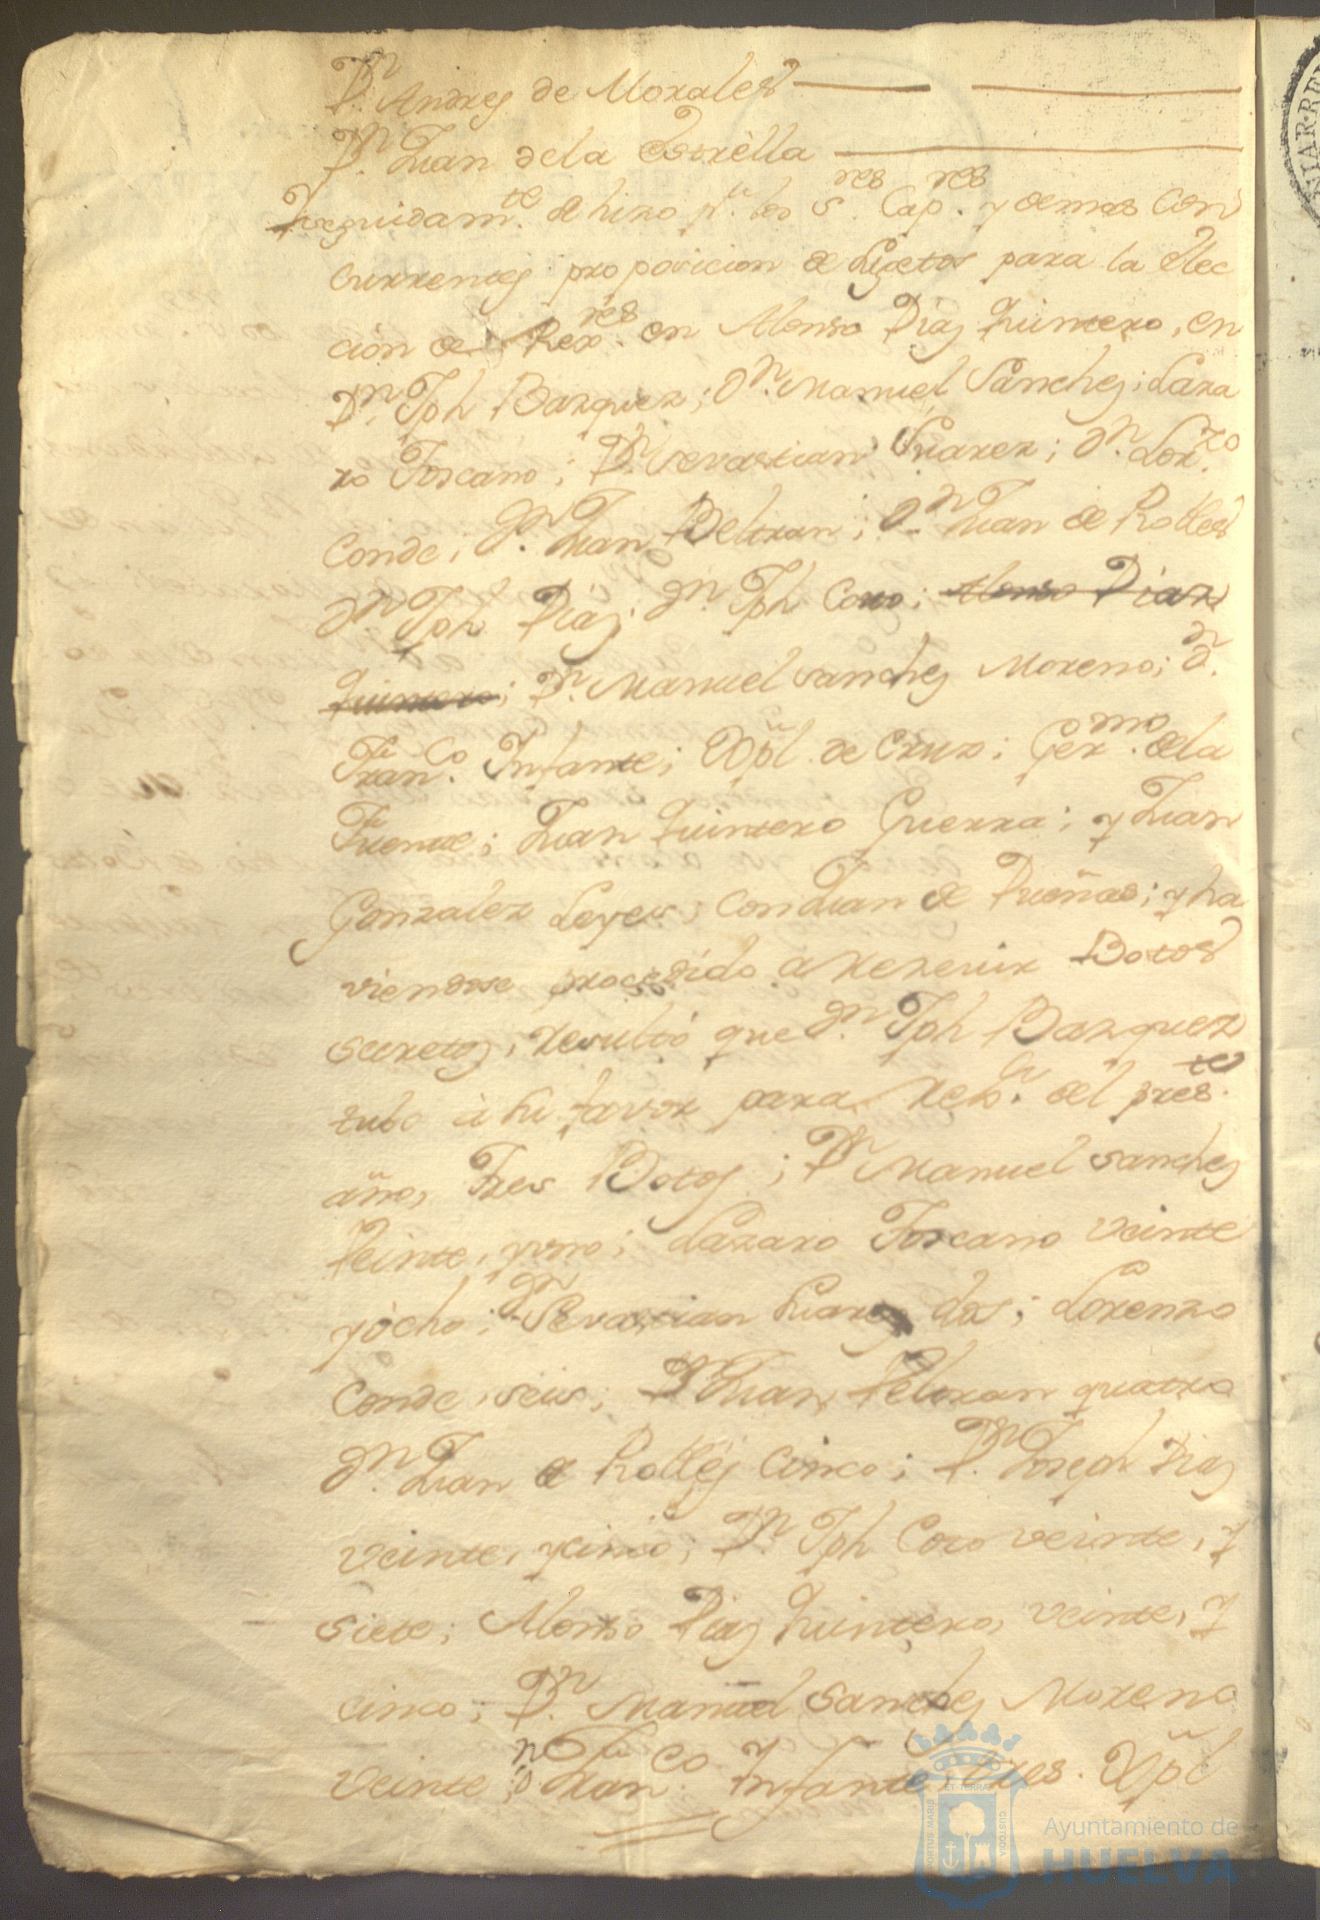 Dn Andres de Morales
Dn Juan dela Corrèlla
Seguidamte. se hizo pr. los Sres. Capres. y demas Con
currentes proposicion de Sugetos para la Elec
cion de Rexres. en Alonso Diaz Quintero, en
Dn. Jph Bazquez; Dn. Manuel Sanchez; Laza
ro Toscano; Dn. Sevastian Suarez; Dn. Lorzo.
Conde; Dn. Juan Beltran; Dn. Juan de Robles
Dn Jph Diaz; Dn. Jph Coro; Alonso Diaz
Quintero; Dn. Manuel Sanchez Moreno; Dn.
Franco. Infante; Xpl de Cruz; Germo. dela
Fuente; Juan Quintero Guerra; y Juan
Gonzalez Leyes; Con Juan de Dueñas; y ha
viendose procedido a rezevir Botos
secretos, resultò que Dn. Jph Bazquez
tubo à su favor para el preste.
año, Tres Botos; Dn Manuel Sanchez
Veinte, yuno; Lazaro Toscano Veinte
yòcho; Dn Sevastian Suarez dos; Lorenzo
Conde, seis; Dn Juan Beltran quatro
Dn. Juan de Robles Cinco; Dn. Joseph Diaz
Veinte, ycinco; Dn. Jph Coro veinte, y
siete; Alonso Diaz Quintero, veinte, y
cinco; Dn. Manuel Sanchez Moreno
Veinte; Dn Franco. Infante, tres. Xpl
Ayuntamiento de
HUELVA
PORTUS MARIS
ET TERRAE
CUSTODIA